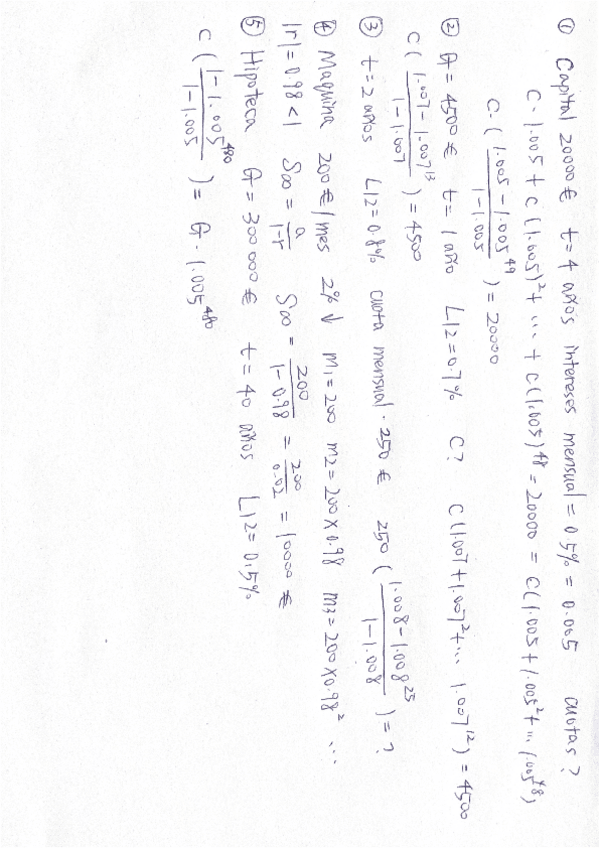 ① Capital 20000 € t = 4 años intereses mensual = 0.5% = 0.005 cuotas?
C · 1.005 + C (1.005)² + ... + C (1.005)⁴⁸ = 20000 = C (1.005 + 1.005² + ... 1.005⁴⁸)
C · ( (1.005 - 1.005⁴⁹) / (1 - 1.005) ) = 20000
② G = 4500 € t = 1 año L12 = 0.7% C? C (1.007 + 1.007² + ... 1.007¹²) = 4500
C ( (1.007 - 1.007¹³) / (1 - 1.007) ) = 4500
③ t = 2 años L12 = 0.8% cuota mensual · 250 € 250 ( (1.008 - 1.008²⁵) / (1 - 1.008) ) = ?
④ Maquina 200 € / mes 2% ↓ M1 = 200 m2 = 200 x 0.98 m3 = 200 x 0.98² ...
|r| = 0.98 < 1 S∞ = a / (1-r) S∞ = 200 / (1 - 0.98) = 200 / 0.02 = 10000 €
⑤ Hipoteca G = 300 000 € t = 40 años L12 = 0,5%
C ( (1 - 1.005⁴⁸⁰) / (1 - 1.005) ) = G · 1.005⁴⁸⁰